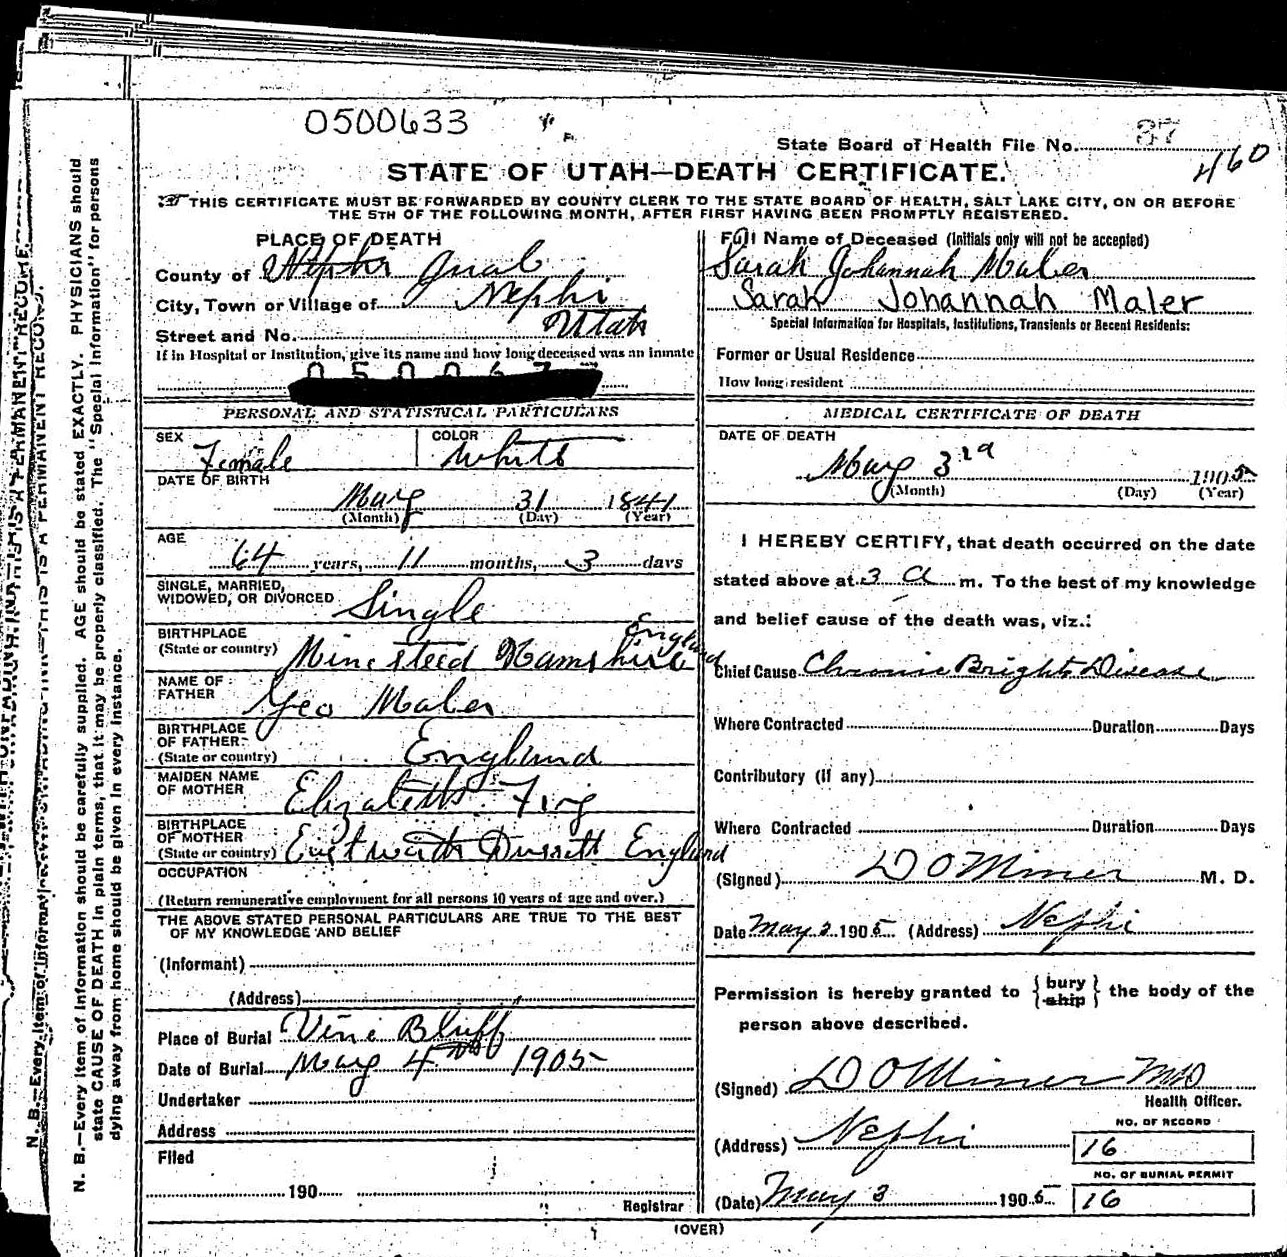 0500633
State Board of Health File No. 37
460
STATE OF UTAH—DEATH CERTIFICATE.
THIS CERTIFICATE MUST BE FORWARDED BY COUNTY CLERK TO THE STATE BOARD OF HEALTH, SALT LAKE CITY, ON OR BEFORE
THE 5TH OF THE FOLLOWING MONTH, AFTER FIRST HAVING BEEN PROMPTLY REGISTERED.
N. B.—Every item of information should be carefully supplied. AGE should be stated EXACTLY. PHYSICIANS should
state CAUSE OF DEATH in plain terms, that it may be properly classified. The "Special Information" for persons
dying away from home should be given in every instance.
PLACE OF DEATH
County of Juab
City, Town or Village of Nephi
Utah
Street and No.
If in Hospital or Institution, give its name and how long deceased was an inmate
PERSONAL AND STATISTICAL PARTICULARS
SEX
Female
COLOR
White
DATE OF BIRTH
May 31 1841
(Month) (Day) (Year)
AGE
64 years, 11 months, 3 days
SINGLE, MARRIED,
WIDOWED, OR DIVORCED Single
BIRTHPLACE
(State or country) Minesteed Hamshire England
NAME OF
FATHER Geo Maler
BIRTHPLACE
OF FATHER
(State or country) England
MAIDEN NAME
OF MOTHER Elizabeth
BIRTHPLACE
OF MOTHER
(State or country) England
OCCUPATION
(Return remunerative employment for all persons 10 years of age and over.)
THE ABOVE STATED PERSONAL PARTICULARS ARE TRUE TO THE BEST
OF MY KNOWLEDGE AND BELIEF
(Informant)
(Address)
Place of Burial Vine Bluff
Date of Burial May 4 1905
Undertaker
Address
Filed
190
Registrar
Full Name of Deceased (Initials only will not be accepted)
Sarah Johannah Maler
Sarah Johannah Maler
Special Information for Hospitals, Institutions, Transients or Recent Residents:
Former or Usual Residence
How long resident
MEDICAL CERTIFICATE OF DEATH
DATE OF DEATH
May 3rd 1905
(Month) (Day) (Year)
I HEREBY CERTIFY, that death occurred on the date
stated above at 3 a m. To the best of my knowledge
and belief cause of the death was, viz.:
Chief Cause Chronic Brights Disease
Where Contracted Duration Days
Contributory (if any)
Where Contracted Duration Days
(Signed) D O Miner M. D.
Date May 3 1905 (Address) Nephi
Permission is hereby granted to {bury ship} the body of the
person above described.
(Signed) D O Miner MD
Health Officer.
(Address) Nephi
NO. OF RECORD
16
NO. OF BURIAL PERMIT
(Date) May 3 1905
16
(OVER)